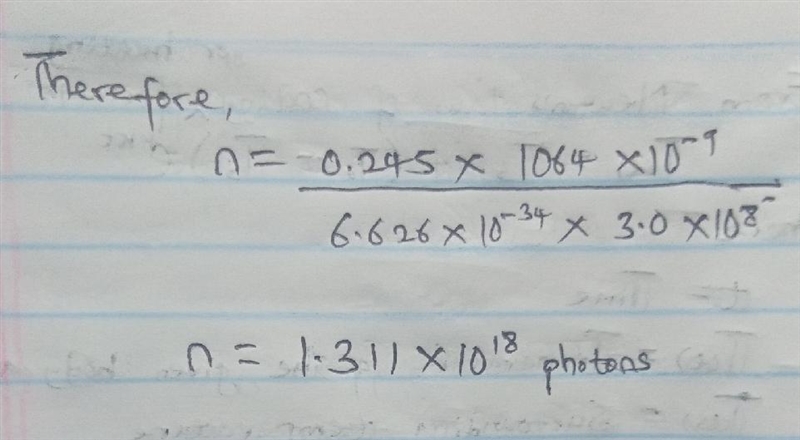 Therefore,
n = 0.245 × 1064 × 10⁻⁹
6.626 × 10⁻³⁴ × 3.0 × 10⁸
n = 1.311 × 10¹⁸ photons